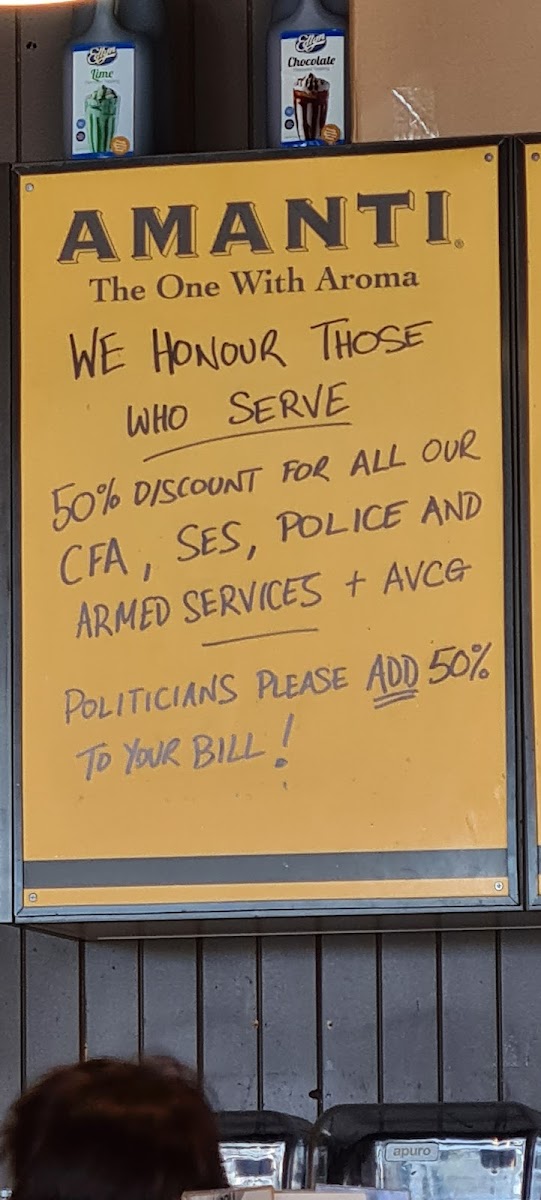 Edlyn
Lime
Edlyn
Chocolate
AMANTI®
The One With Aroma
WE HONOUR THOSE
WHO SERVE
50% DISCOUNT FOR ALL OUR
CFA, SES, POLICE AND
ARMED SERVICES + AVCG
POLITICIANS PLEASE ADD 50%
TO YOUR BILL!
apuro